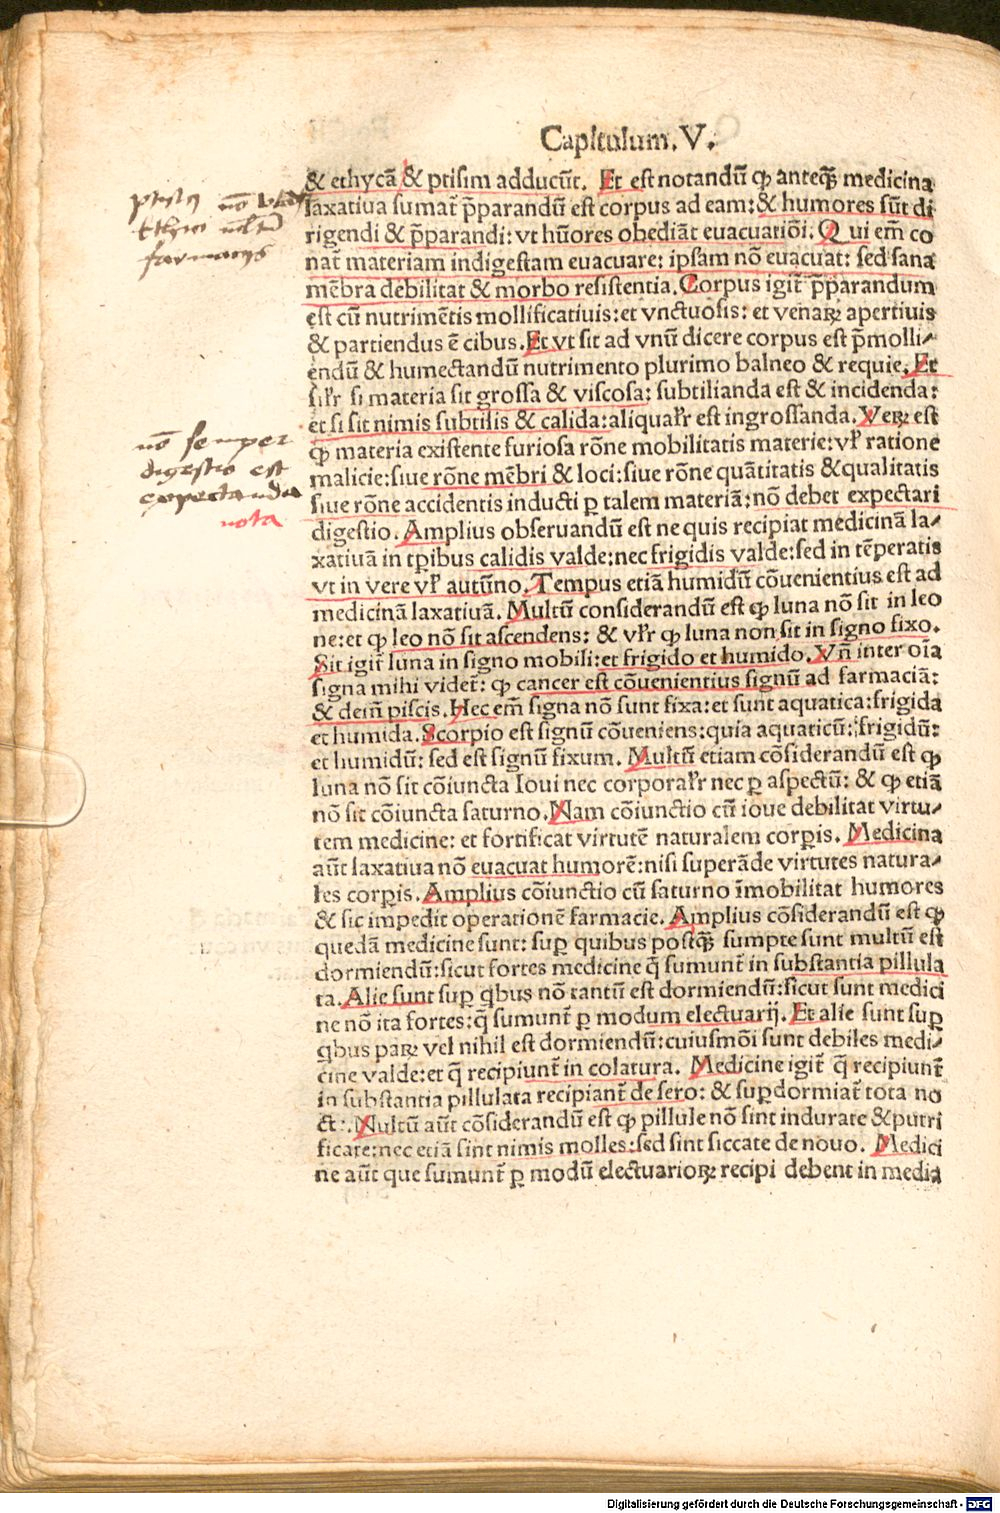 Capitulum. V.
& ethycā & ptisim adducūt. Et est notandū ꝙ anteꝗ̄ medicina
laxatiua sumat̄ p̄parandū est corpus ad eam: & humores sūt di
rigendi & p̄parandi: vt hūores obediāt euacuatiōi. Q ui em̄ co
nat̄ materiam indigestam euacuare: ipsam nō euacuat: sed sana
mēbra debilitat & morbo resistentia. Corpus igit̄ p̄parandum
est cū nutrimētis mollificatiuis: et vnctuosis: et venaꝝ apertiuis
& partiendus ē cibus. Et vt sit ad vnū dicere corpus est p̄molli⸗
endū & humectandū nutrimento plurimo balneo & requie. Et
sil'r si materia sit grossa & viscosa: subtilianda est & incidenda:
et si sit nimis subtilis & calida: aliqual'r est ingrossanda. Veꝝ est
ꝙ materia existente furiosa rōne mobilitatis materie: vl' ratione
malicie: siue rōne mēbri & loci: siue rōne quātitatis & qualitatis
siue rōne accidentis inducti ꝑ talem materiā: nō debet expectari
digestio. Amplius obseruandū est ne quis recipiat medicinā la⸗
xatiuā in tꝑibus calidis valde: nec frigidis valde: sed in tēperatis
vt in vere vl' autūno. Tempus etiā humidū cōuenientius est ad
medicinā laxatiuā. Multū considerandū est ꝙ luna nō sit in leo
ne: et ꝙ leo nō sit ascendens: & vl'r ꝙ luna non sit in signo fixo.
Sit igit̄ luna in signo mobili: et frigido et humido. Vn̄ inter oīa
signa mihi videt̄: ꝙ cancer est cōuenientius signū ad farmaciā:
& dein̄ piscis. Hec em̄ signa nō sunt fixa: et sunt aquatica: frigida
et humida. Scorpio est signū cōueniens: quia aquaticū: frigidū:
et humidū: sed est signū fixum. Multū etiam cōsiderandū est ꝙ
luna nō sit cōiuncta Ioui nec corporal'r nec ꝑ aspectū: & ꝙ etiā
nō sit cōiuncta saturno. Nam cōiunctio cū ioue debilitat virtu⸗
tem medicine: et fortificat virtutē naturalem corꝑis. Medicina
aūt laxatiua nō euacuat humorē: nisi superāde virtutes natura⸗
les corꝑis. Amplius cōiunctio cū saturno īmobilitat humores
& sic impedit operationē farmacie. Amplius cōsiderandū est ꝙ
quedā medicine sunt: suꝑ quibus postꝗ̄ sumpte sunt multū est
dormiendū: sicut fortes medicine q̄ sumunt̄ in substantia pillula
ta. Alie sunt suꝑ qbus nō tantū est dormiendū: sicut sunt medici
ne nō ita fortes: q̄ sumunt̄ ꝑ modum electuarij. Et alie sunt suꝑ
qbus paꝝ vel nihil est dormiendū: cuiusmōi sunt debiles medi⸗
cine valde: et q̄ recipiunt̄ in colatura. Medicine igit̄ q̄ recipiunt̄
in substantia pillulata recipiant̄ de sero: & suꝑdormiat̄ tota no
cte. Multū aūt cōsiderandū est ꝙ pillule nō sint indurate & putri
ficate: nec etiā sint nimis molles: sed sint siccate de nouo. Medici
ne aūt que sumunt̄ ꝑ modū electuarioꝝ recipi debent in media
nō
farmacijs
nō semper
digestio est
expectanda
nota
Digitalisierung gefördert durch die Deutsche Forschungsgemeinschaft - DFG